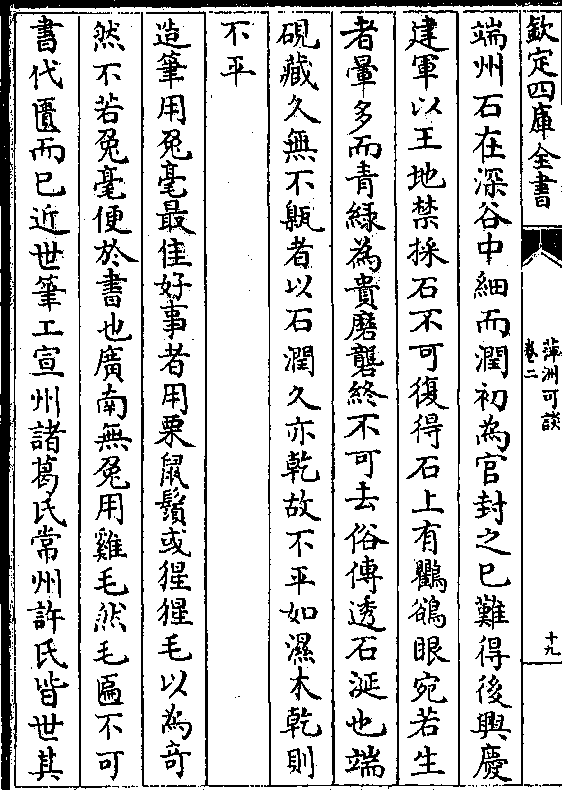 欽定四庫全書
萍洲可談
卷二
十九
端州石在深谷中細而潤初為官封之已難得後興慶
建軍以王地禁採石不可復得石上有鸜鵒眼宛若生
者暈多而青綠為貴磨礱終不可去俗傳透石涎也端
硯藏久無不瓾者以石潤久亦乾故不平如濕木乾則
不平
造筆用兔毫最佳好事者用栗鼠鬚或猩猩毛以為奇
然不若兔毫便於書也廣南無兔用雞毛然毛匾不可
書代匱而已近世筆工宣州諸葛氏常州許氏皆世其